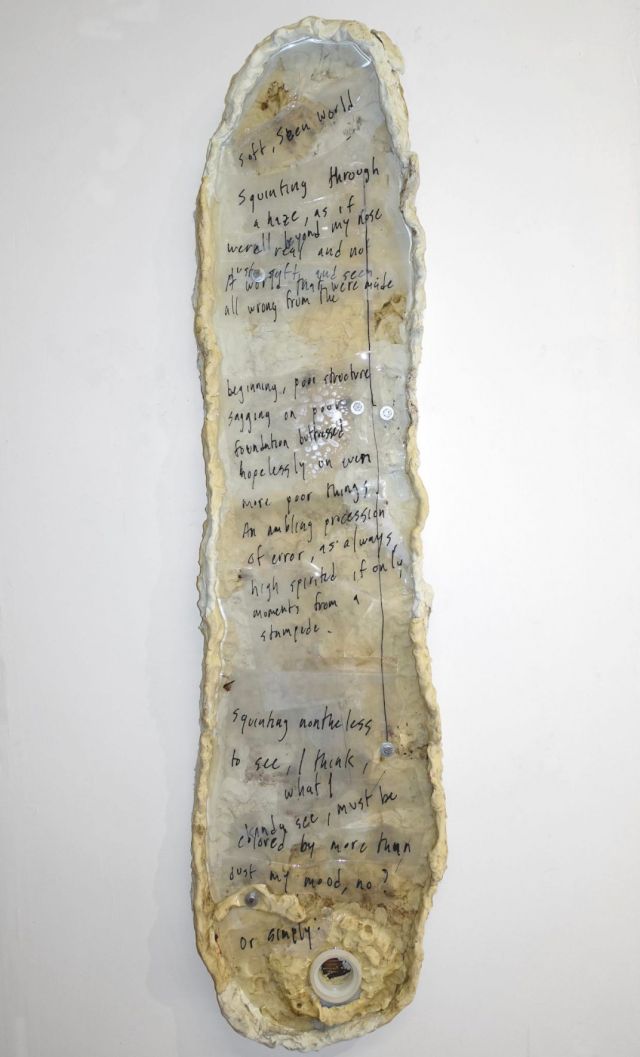 soft, seen world
Squinting through
a haze, as if
were all beyond my nose
real and not
just soft, and seen
A world that were made
all wrong from the
beginning, poor structure
sagging on poor
foundation buttressed
hopelessly on even
more poor things.
An ambling procession
of error, as always,
high spirited if only
moments from a
stampede.
Squinting nontheless
to see, I think,
what I
see, must be
colored by more than
just my mood, no?
or simply: